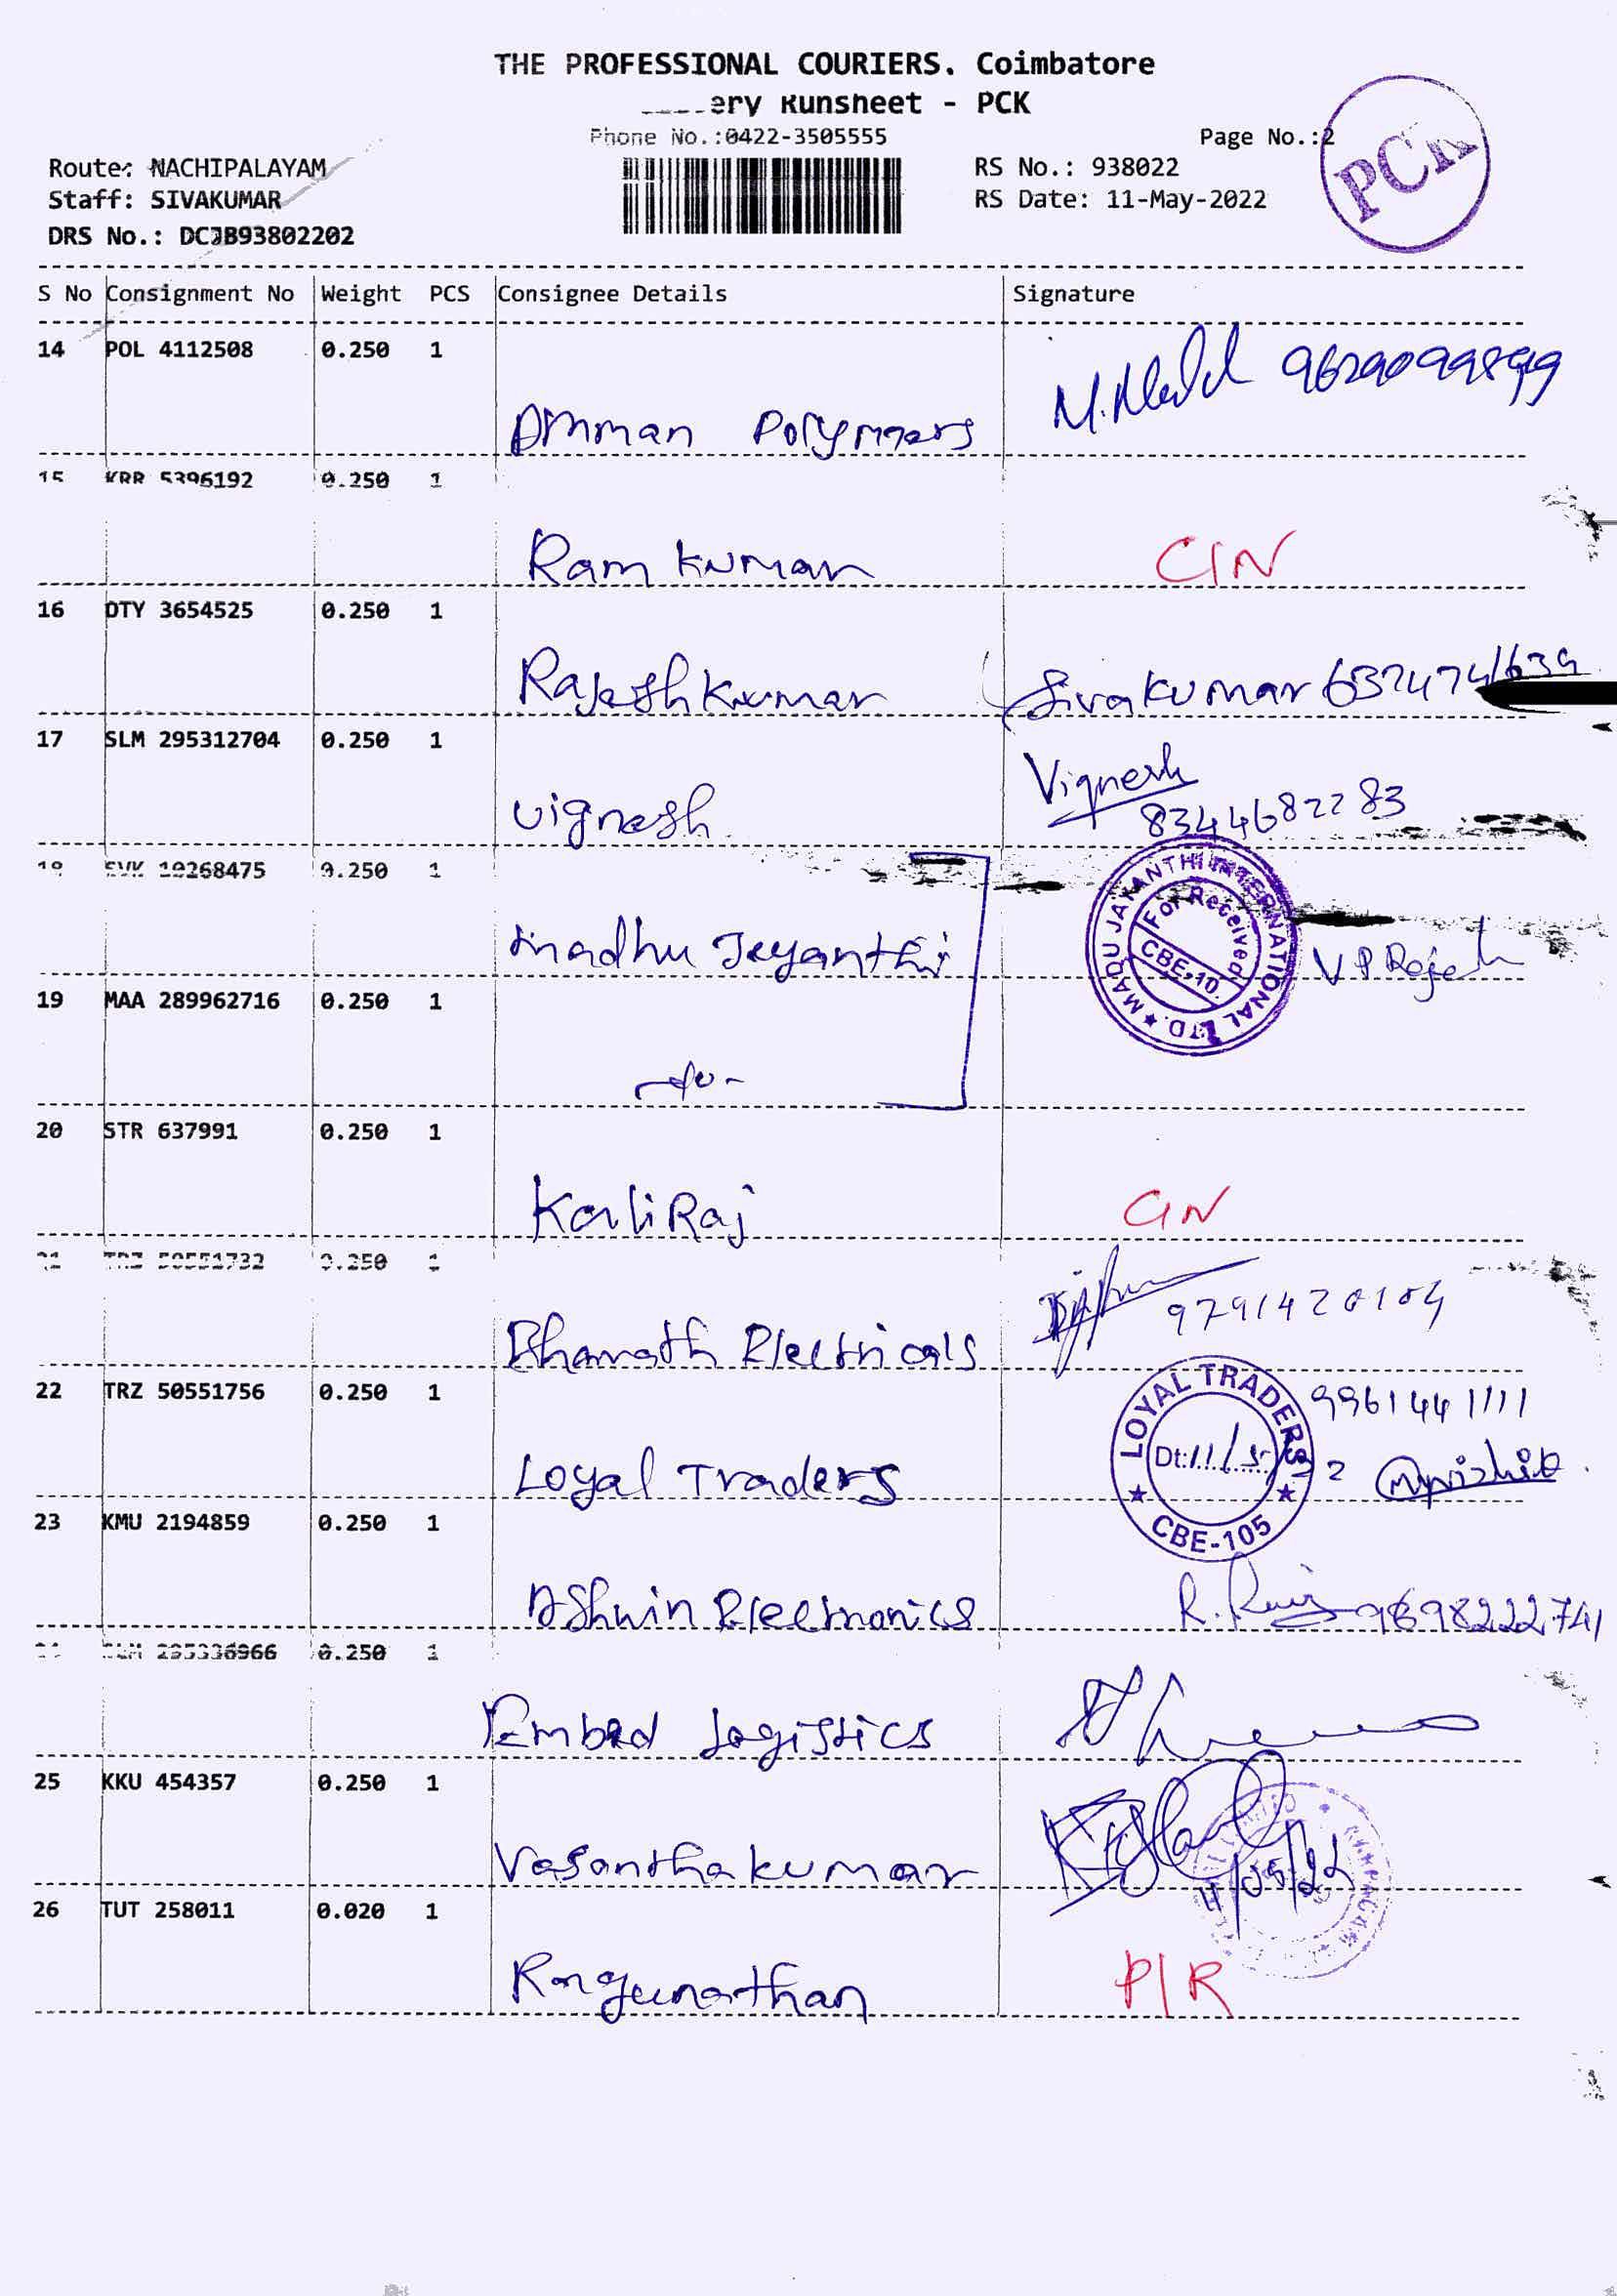 THE PROFESSIONAL COURIERS. Coimbatore
ery Runsheet - PCK
Phone No.:0422-3505555
Page No.:2
PCK
Route: NACHIPALAYAM
RS No.: 938022
Staff: SIVAKUMAR
RS Date: 11-May-2022
DRS No.: DCJB93802202
S No Consignment No Weight PCS Consignee Details Signature
14 POL 4112508 0.250 1
Amman Polymers 9629099899
15 KRR 5396192 0.250 1
Ram kumar CIN
16 DTY 3654525 0.250 1
Rajesh kumar Sivakumar
17 SLM 295312704 0.250 1
Vignesh
vignesh 8344682283
18 10268475 0.250 1
MADU JAYANTHI INTERNATIONAL LTD.
For Received
CBE-10.
madhu Jeyanthi V P Rajesh
19 MAA 289962716 0.250 1
20 STR 637991 0.250 1
KaliRaj CIN
21 TRZ 50551732 0.250 1
Bharath Electricals 9791420104
22 TRZ 50551756 0.250 1
LOYAL TRADERS
9961441111
Dt:11/5/22
Loyal Traders
CBE-105
23 KMU 2194859 0.250 1
Ashwin Electronics 9898222741
24 295336966 0.250 1
Embed Logistics
25 KKU 454357 0.250 1
Vasanthakumar 11/05/22
26 TUT 258011 0.020 1
Ragunathan P/R